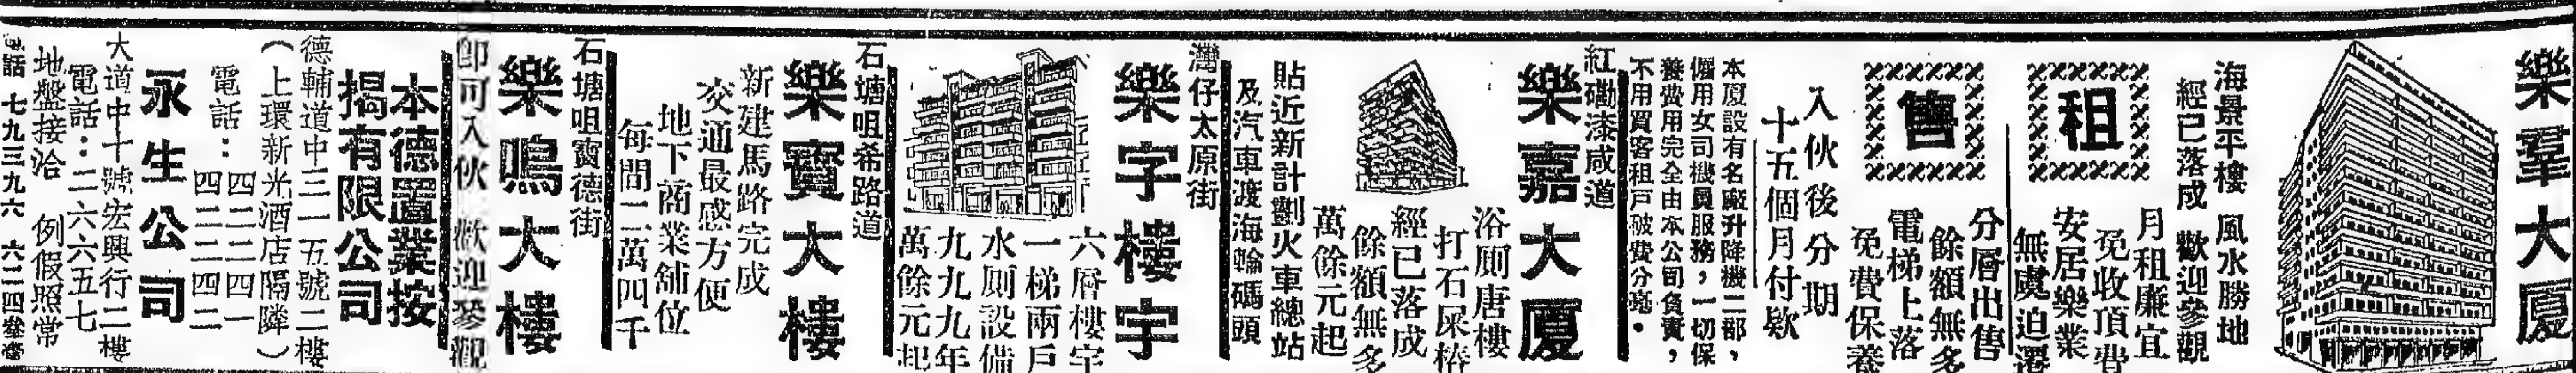 樂羣大廈
海景平樓 風水勝地
經已落成 歡迎參觀
租
月租廉宜
免收頂費
安居樂業
無慮迫遷
售
分層出售
餘額無多
電梯上落
免費保養
入伙後分期
十五個月付欵
本廈設有名廠升降機二部，
僱用女司機員服務，一切保
養費用完全由本公司負責，
不用買客租戶破費分毫。
紅磡漆咸道
樂嘉大廈
浴厠唐樓
打石屎樁
經已落成
餘額無多
萬餘元起
貼近新計劃火車總站
及汽車渡海輪碼頭
灣仔太原街
樂宇樓宇
六層樓宇
一梯兩戶
水厠設備
九九九年
萬餘元起
石塘咀希路道
樂寶大樓
新建馬路完成
交通最感方便
地下商業舖位
每間二萬四千
石塘咀寶德街
樂鳴大樓
即可入伙 歡迎參觀
本德置業按
揭有限公司
德輔道中三一五號二樓
（上環新光酒店隔隣）
電話：四二二四一
四二二四二
永生公司
大道中十號宏興行二樓
電話：二六六五七
地盤接洽 例假照常
電話 七九三九六 六二四